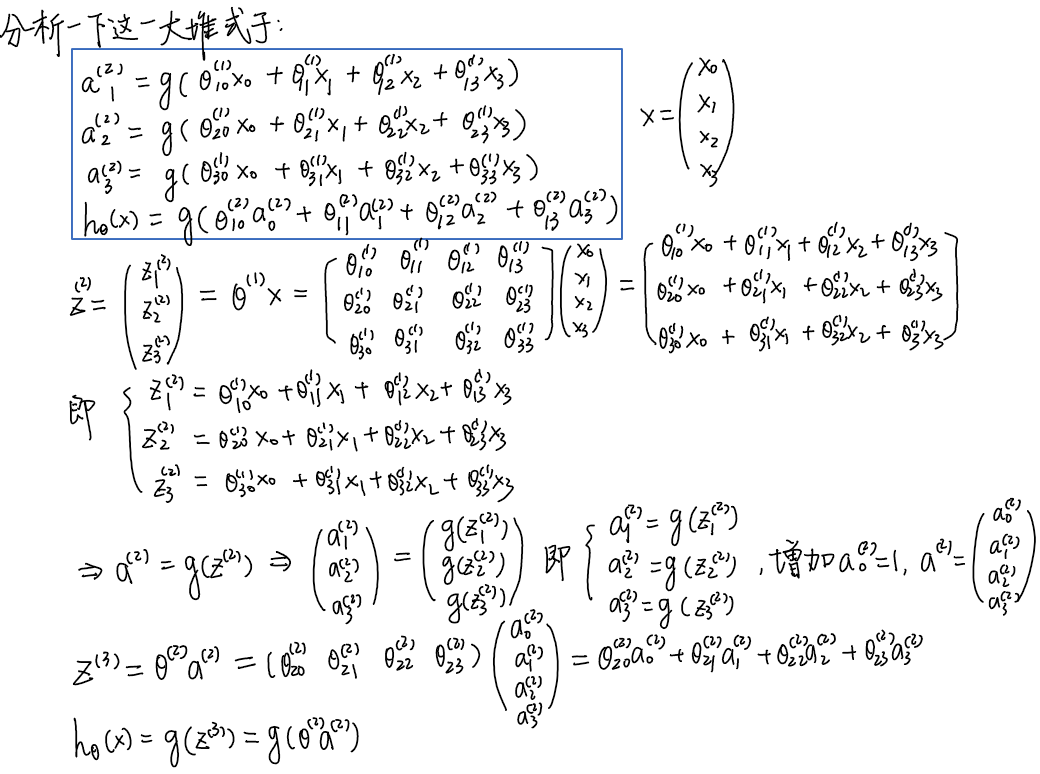 分析一下这一大堆式子:
a₁⁽²⁾ = g(θ₁₀⁽¹⁾x₀ + θ₁₁⁽¹⁾x₁ + θ₁₂⁽¹⁾x₂ + θ₁₃⁽¹⁾x₃)
a₂⁽²⁾ = g(θ₂₀⁽¹⁾x₀ + θ₂₁⁽¹⁾x₁ + θ₂₂⁽¹⁾x₂ + θ₂₃⁽¹⁾x₃)
a₃⁽²⁾ = g(θ₃₀⁽¹⁾x₀ + θ₃₁⁽¹⁾x₁ + θ₃₂⁽¹⁾x₂ + θ₃₃⁽¹⁾x₃)
h_θ(x) = g(θ₁₀⁽²⁾a₀⁽²⁾ + θ₁₁⁽²⁾a₁⁽²⁾ + θ₁₂⁽²⁾a₂⁽²⁾ + θ₁₃⁽²⁾a₃⁽²⁾)
x = (x₀ x₁ x₂ x₃)
z⁽²⁾ = (z₁⁽²⁾ z₂⁽²⁾ z₃⁽²⁾) = θ⁽¹⁾x = [θ₁₀⁽¹⁾ θ₁₁⁽¹⁾ θ₁₂⁽¹⁾ θ₁₃⁽¹⁾; θ₂₀⁽¹⁾ θ₂₁⁽¹⁾ θ₂₂⁽¹⁾ θ₂₃⁽¹⁾; θ₃₀⁽¹⁾ θ₃₁⁽¹⁾ θ₃₂⁽¹⁾ θ₃₃⁽¹⁾] (x₀ x₁ x₂ x₃) = [θ₁₀⁽¹⁾x₀ + θ₁₁⁽¹⁾x₁ + θ₁₂⁽¹⁾x₂ + θ₁₃⁽¹⁾x₃; θ₂₀⁽¹⁾x₀ + θ₂₁⁽¹⁾x₁ + θ₂₂⁽¹⁾x₂ + θ₂₃⁽¹⁾x₃; θ₃₀⁽¹⁾x₀ + θ₃₁⁽¹⁾x₁ + θ₃₂⁽¹⁾x₂ + θ₃₃⁽¹⁾x₃]
即 { z₁⁽²⁾ = θ₁₀⁽¹⁾x₀ + θ₁₁⁽¹⁾x₁ + θ₁₂⁽¹⁾x₂ + θ₁₃⁽¹⁾x₃
z₂⁽²⁾ = θ₂₀⁽¹⁾x₀ + θ₂₁⁽¹⁾x₁ + θ₂₂⁽¹⁾x₂ + θ₂₃⁽¹⁾x₃
z₃⁽²⁾ = θ₃₀⁽¹⁾x₀ + θ₃₁⁽¹⁾x₁ + θ₃₂⁽¹⁾x₂ + θ₃₃⁽¹⁾x₃
⇒ a⁽²⁾ = g(z⁽²⁾) ⇒ (a₁⁽²⁾ a₂⁽²⁾ a₃⁽²⁾) = (g(z₁⁽²⁾) g(z₂⁽²⁾) g(z₃⁽²⁾)) 即 { a₁⁽²⁾ = g(z₁⁽²⁾) a₂⁽²⁾ = g(z₂⁽²⁾) a₃⁽²⁾ = g(z₃⁽²⁾) , 增加a₀⁽²⁾=1, a⁽²⁾ = (a₀⁽²⁾ a₁⁽²⁾ a₂⁽²⁾ a₃⁽²⁾)
z⁽³⁾ = θ⁽²⁾a⁽²⁾ = (θ₂₀⁽²⁾ θ₂₁⁽²⁾ θ₂₂⁽²⁾ θ₂₃⁽²⁾) (a₀⁽²⁾ a₁⁽²⁾ a₂⁽²⁾ a₃⁽²⁾) = θ₂₀⁽²⁾a₀⁽²⁾ + θ₂₁⁽²⁾a₁⁽²⁾ + θ₂₂⁽²⁾a₂⁽²⁾ + θ₂₃⁽²⁾a₃⁽²⁾
h_θ(x) = g(z⁽³⁾) = g(θ⁽²⁾a⁽²⁾)